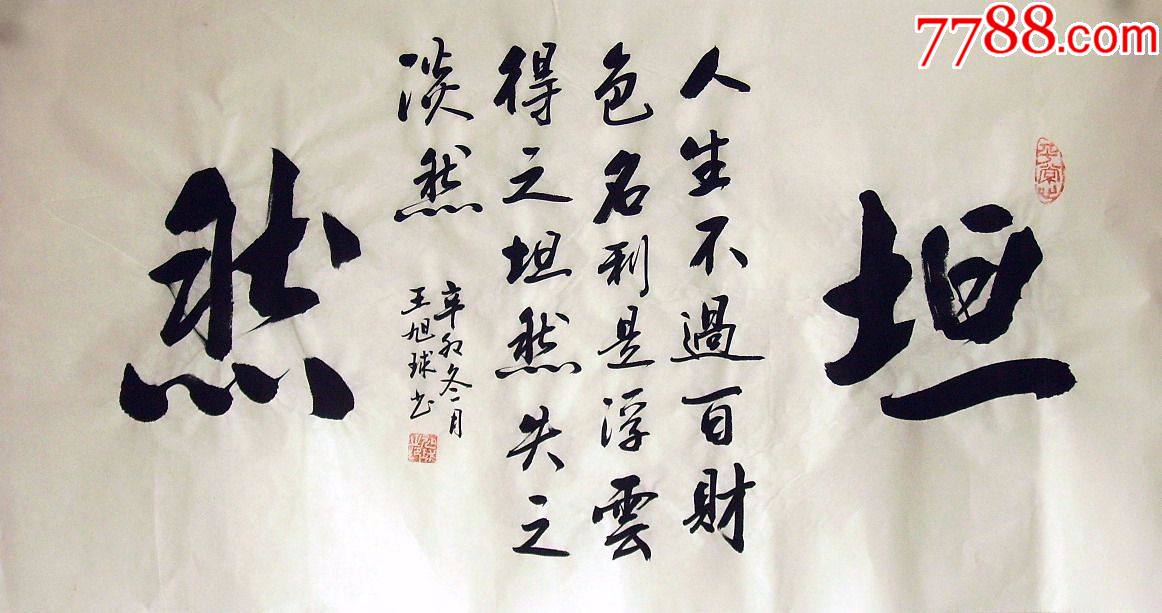 坦
人生不過百財
色名利是浮雲
得之坦然失之
淡然
然
辛卯冬月
王旭球书
7788.com